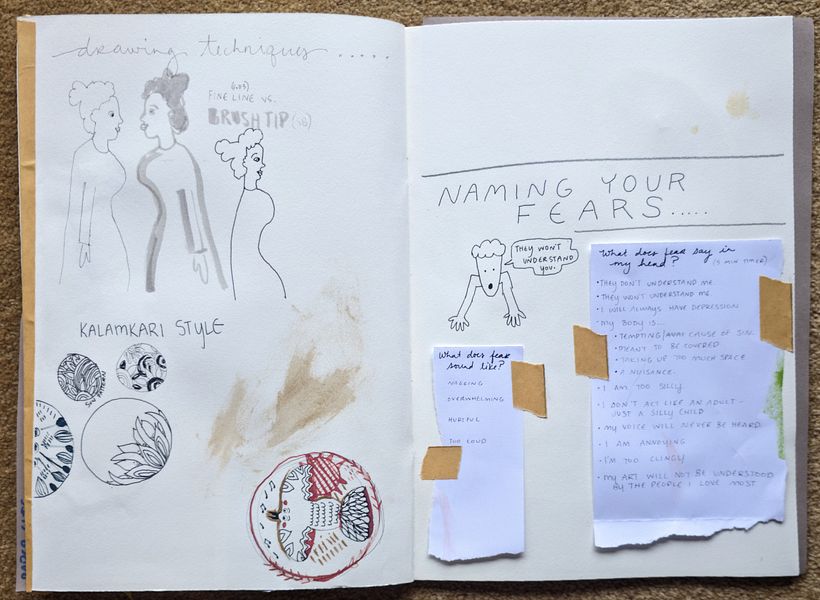 drawing techniques .....
(0.05)
FINE LINE VS.
BRUSH TIP
KALAMKARI STYLE
NAMING YOUR
FEARS.....
THEY WON'T
UNDERSTAND
YOU.
What does fear
sound like?
NAGGING
OVERWHELMING
HURTFUL
TOO LOUD
What does fear say in
my head? (5 MIN TIMER)
• THEY DON'T UNDERSTAND ME.
• THEY WON'T UNDERSTAND ME.
• I WILL ALWAYS HAVE DEPRESSION
• MY BODY IS...
• TEMPTING/AWAY CAUSE OF SIN.
• MEANT TO BE COVERED
• TAKING UP TOO MUCH SPACE
• A NUISANCE.
• I AM TOO SILLY.
• I DON'T ACT LIKE AN ADULT -
JUST A SILLY CHILD
• MY VOICE WILL NEVER BE HEARD.
• I AM ANNOYING
• I'M TOO CLINGY
• MY ART WILL NOT BE UNDERSTOOD
BY THE PEOPLE I LOVE MOST